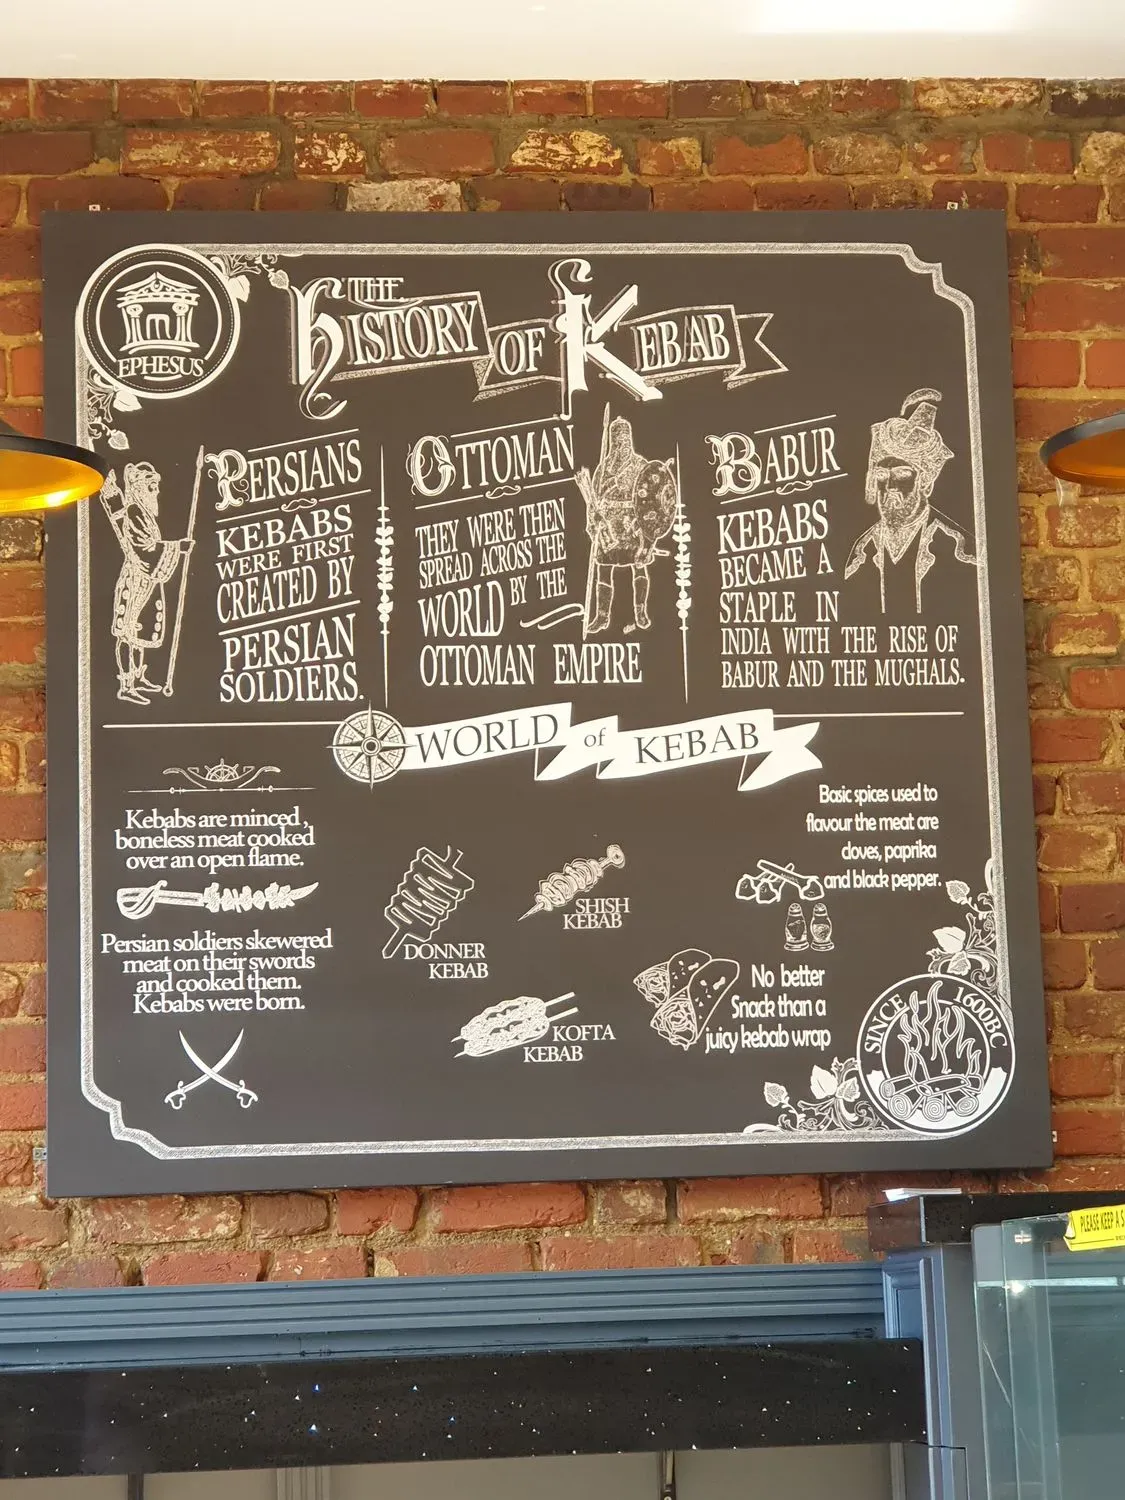 EPHESUS
THE
HISTORY OF KEBAB
PERSIANS
KEBABS
WERE FIRST
CREATED BY
PERSIAN
SOLDIERS.
OTTOMAN
THEY WERE THEN
SPREAD ACROSS THE
WORLD BY THE
OTTOMAN EMPIRE
BABUR
KEBABS
BECAME A
STAPLE IN
INDIA WITH THE RISE OF
BABUR AND THE MUGHALS.
WORLD of KEBAB
Kebabs are minced,
boneless meat cooked
over an open flame.
Persian soldiers skewered
meat on their swords
and cooked them.
Kebabs were born.
DONNER
KEBAB
SHISH
KEBAB
KOFTA
KEBAB
Basic spices used to
flavour the meat are
cloves, paprika
and black pepper.
No better
Snack than a
juicy kebab wrap
SINCE 1600BC
PLEASE KEEP A